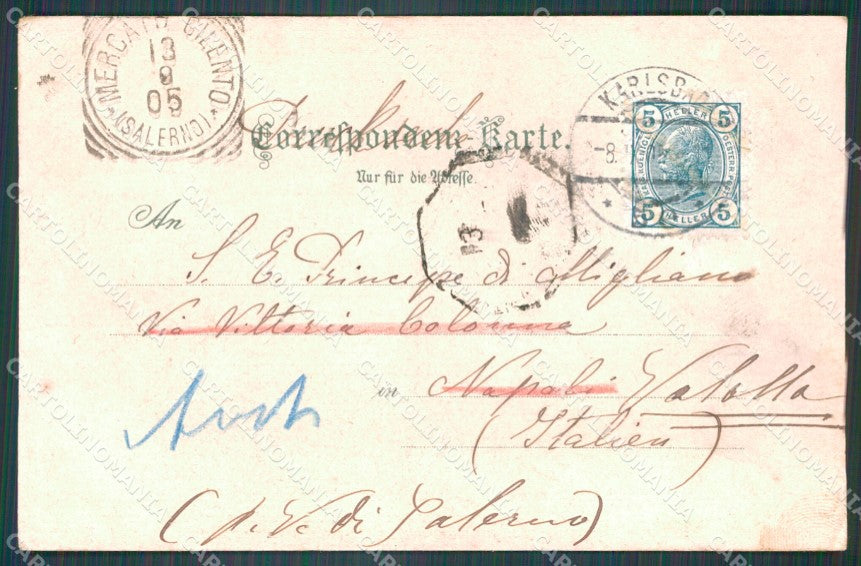 MERCATO CILENTO
13
8
05
(SALERNO)
KARLSBAD
-8.
5 HELLER 5
5 HELLER 5
Correspondenz-Karte.
Nur für die Adresse.
13
An
S. E. Principe di Migliano
Via Vittoria Colonna
in Napoli Valolla
(Italien)
(p. V. di Salerno)
CARTOLINOMANIA